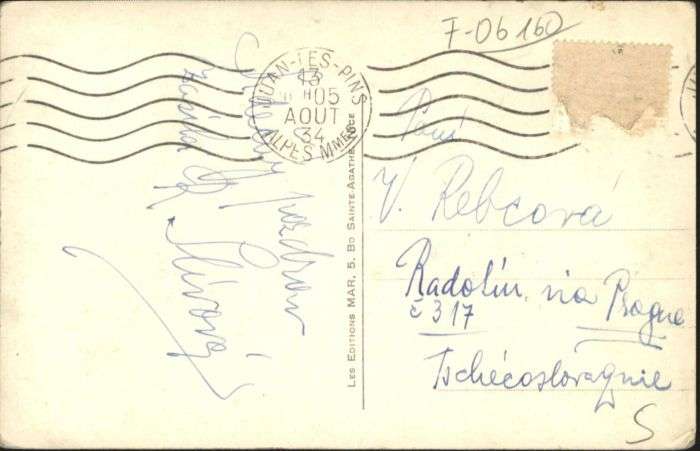 F-06160
JUAN-LES-PINS
13
H05
AOUT
34
ALPES Mmes
pozdrav
zasílá
Slívová
LES EDITIONS MAR, 5, BD SAINTE-AGATHE, NICE
Paní
V. Rebcová
Radotín via Prague
č 317
Tschécoslovaquie
S